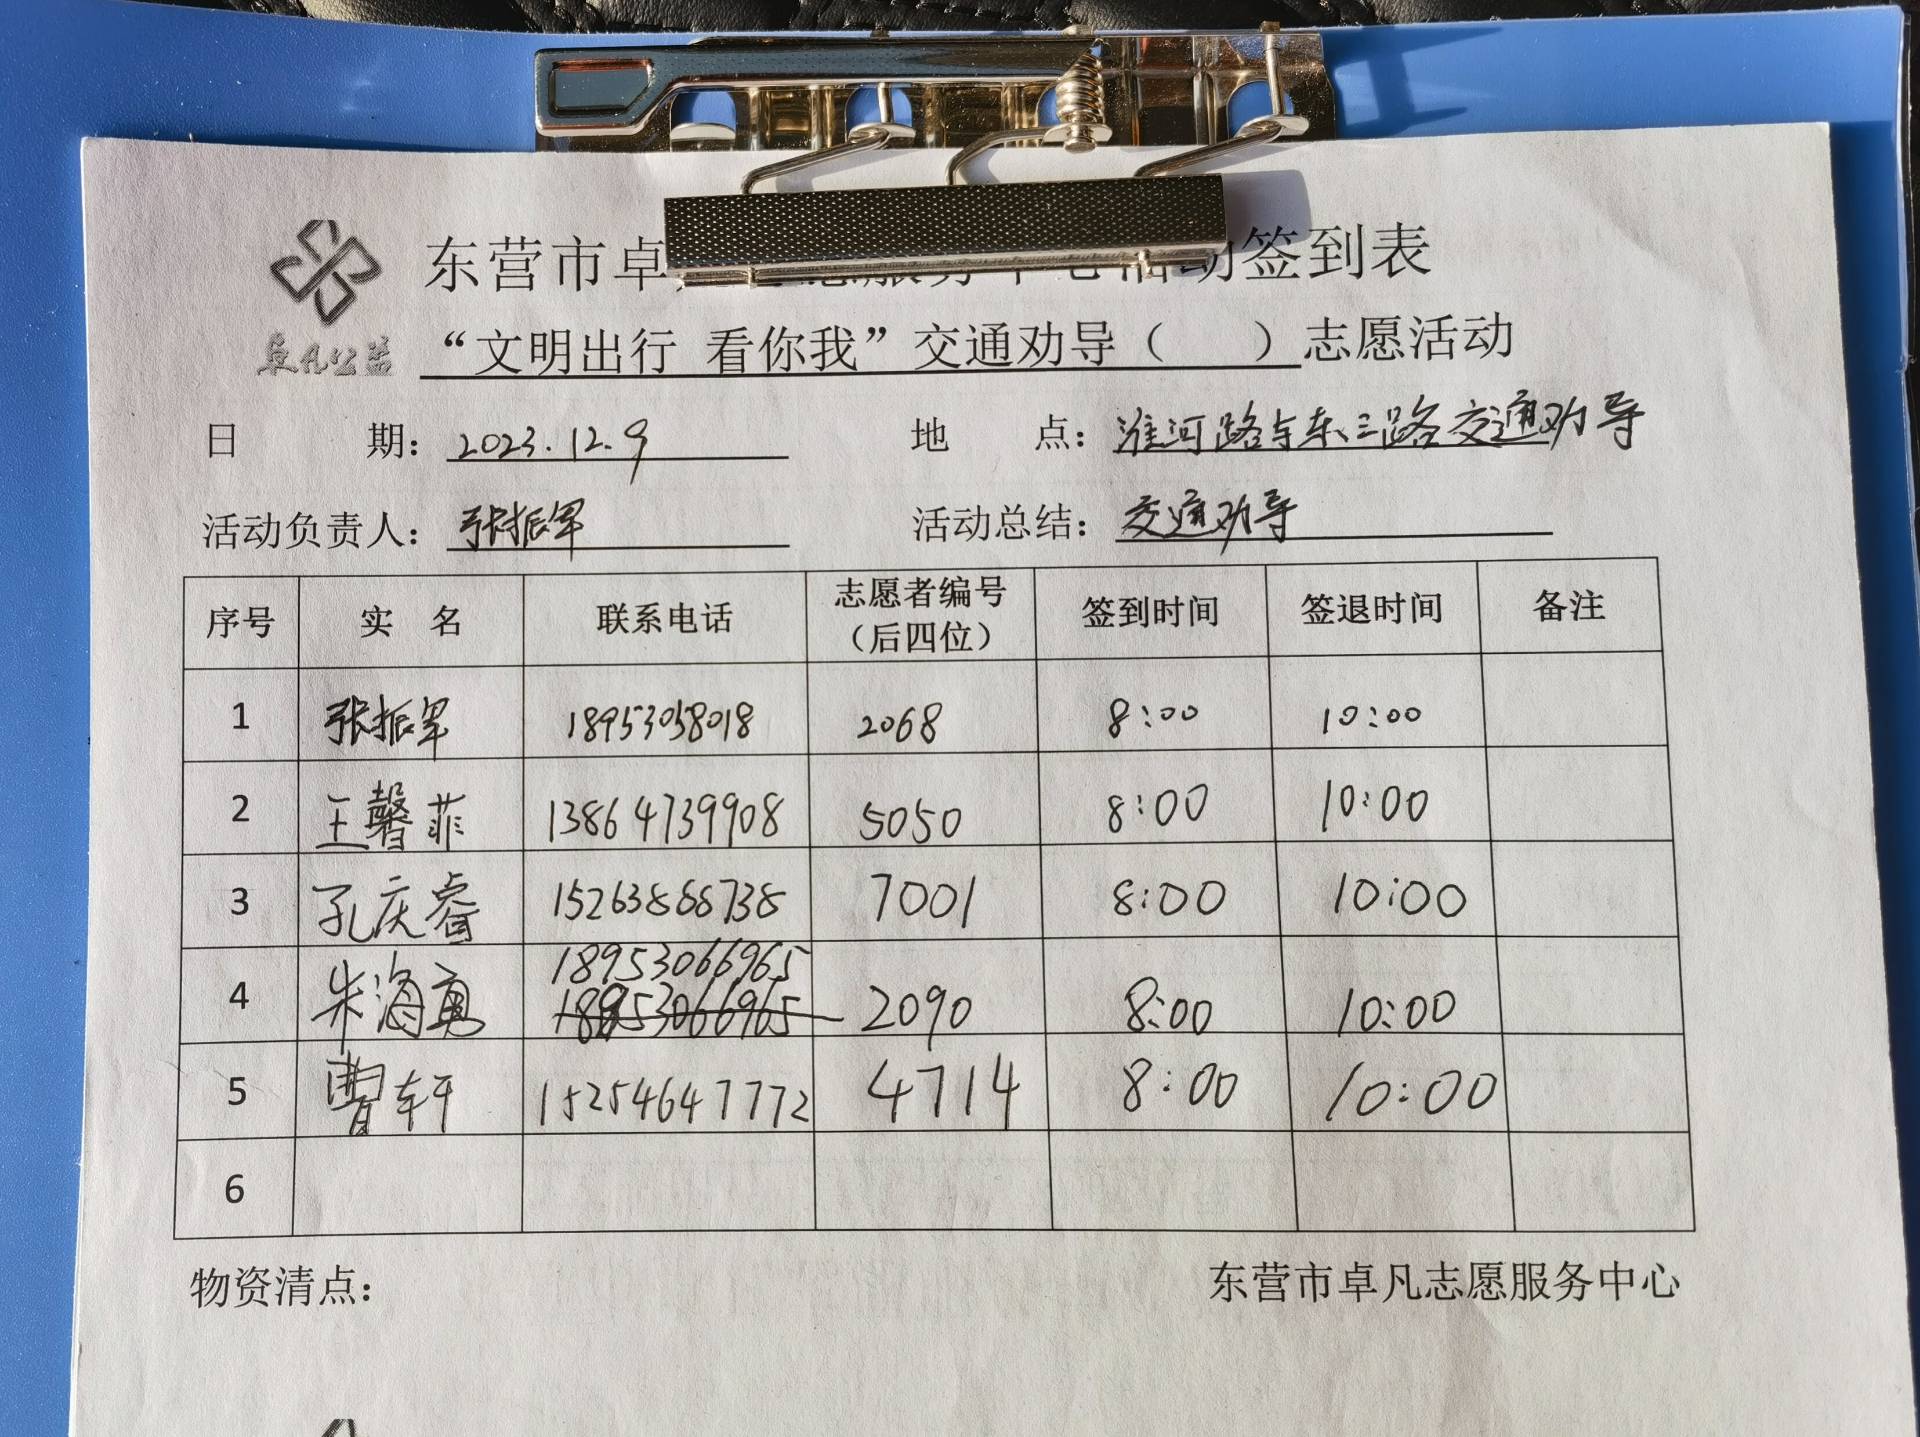 东营市卓 服务中心活动签到表
“文明出行 看你我”交通劝导（ ）志愿活动
卓凡公益
日 期：2023.12.9 地 点：淮河路与东三路交通劝导
活动负责人：张振军 活动总结：交通劝导
序号 实 名 联系电话 志愿者编号（后四位） 签到时间 签退时间 备注
1 张振军 18953058018 2068 8:00 10:00
2 王馨菲 13864739908 5050 8:00 10:00
3 孔庆睿 15263868738 7001 8:00 10:00
4 朱海勇 18953066965 2090 8:00 10:00
18953066965
5 曹轩 15254647772 4714 8:00 10:00
6
物资清点： 东营市卓凡志愿服务中心